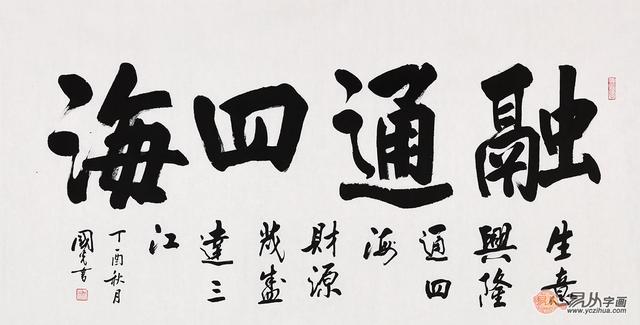 融通四海
生意
興隆
通四
海
財源
茂盛
達三
江
丁酉秋月
國光書
易从字画
www.yczihua.com